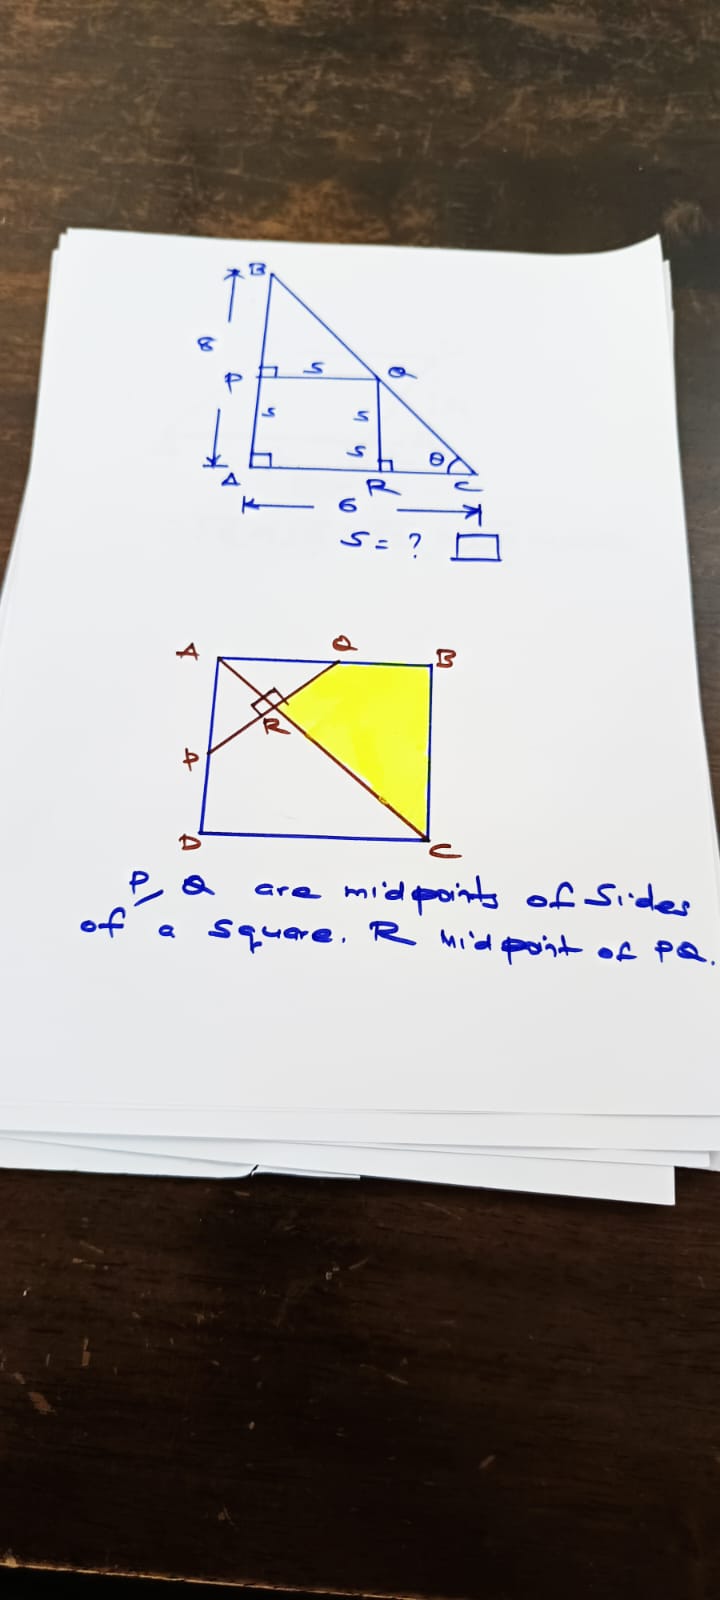 B
8
P
S
Q
S
S
S
θ
A
R
C
6
S = ?
A
Q
B
R
P
D
C
P, Q are midpoints of Sides
of a square. R Midpoint of PQ.